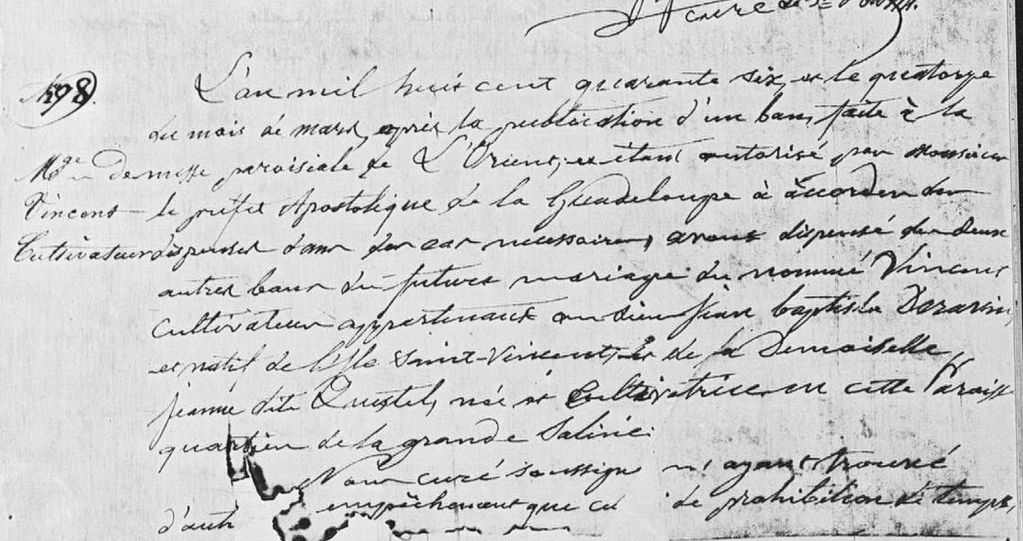 Curé de
N° 98.
L'an mil huit cent quarante six, et le quatorze
du mois de mars, après la publication d'un ban, faite à la
Mge de messe paroissiale de L'Orient, et étant autorisé par Monsieur
Vincent le préfet Apostolique de la Guadeloupe à accorder des
Cultivateur dispenses dans des cas nécessaires, avons dispensé des deux
autres bans du futur mariage du nommé Vincent
cultivateur appartenant au sieur Jean baptiste
et natif de l'Isle Saint-Vincent, et de la Demoiselle
jeanne dite Questel, née et Cultivatrice en cette Paroisse
quartier de la grande Saline.
Nous curé soussigné n'ayant trouvé
d'autr empêchement que ce de prohibition de temps,